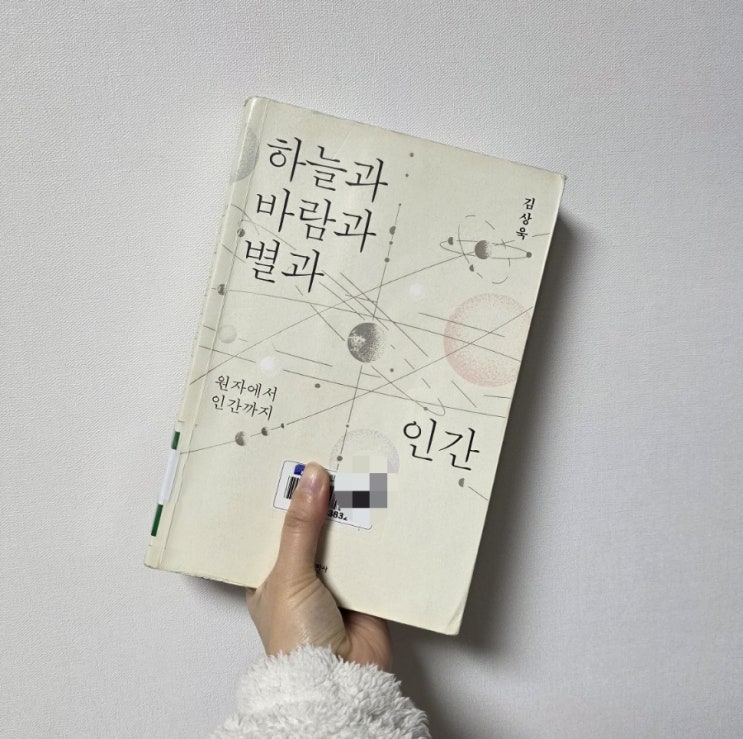 하늘과
바람과
별과
김상욱
원자에서
인간까지
인간